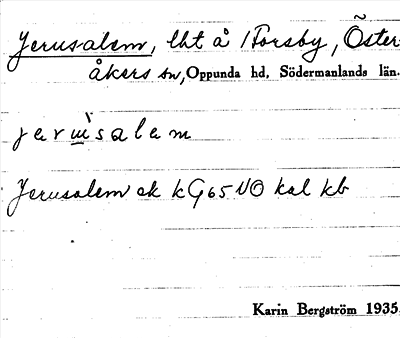 Jerusalem, lht å Forsby, Öster-
åkers sn, Oppunda hd, Södermanlands län.
jerusalem
Jerusalem ek kG65 NO kal kb
Karin Bergström 1935.